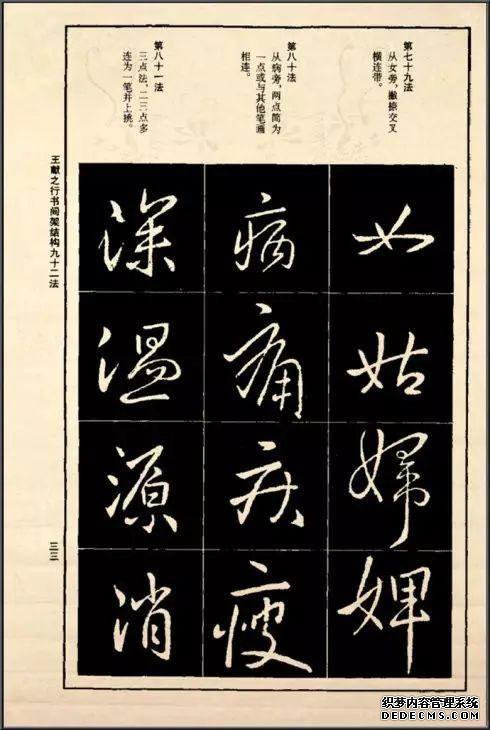 第七十九法
从女旁，撇捺交叉
横连带。
第八十法
从病旁，两点简为
一点或与其他笔画
相连。
第八十一法
三点法，二三点多
连为一笔并上挑。
女
姑
婦
婢
病
痛
疾
瘦
深
温
源
消
王献之行书间架结构九十二法
三三
织梦内容管理系统
DEDECMS.COM